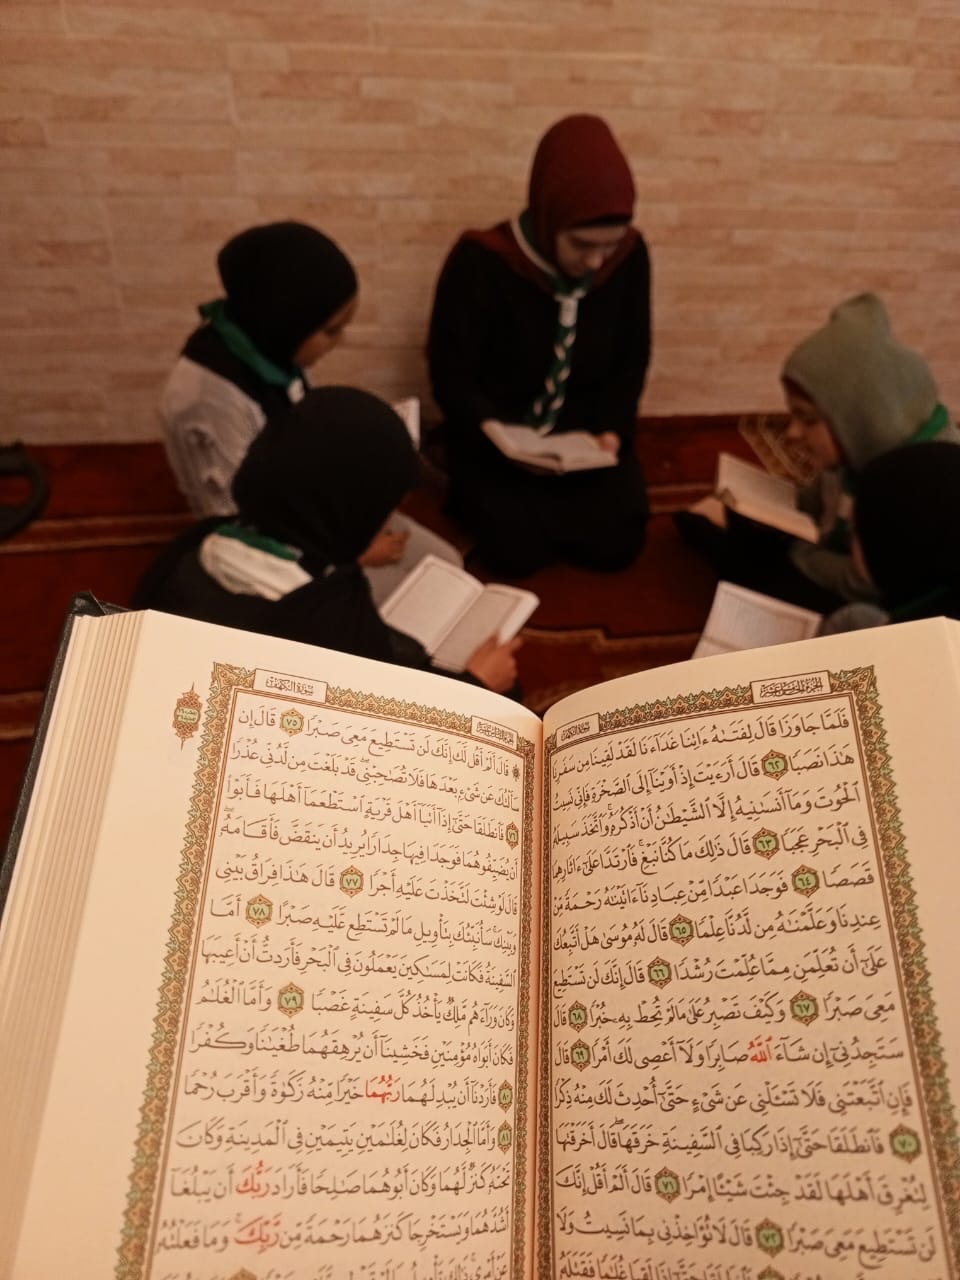 الجزء الخامس عشر
سورة الكهف
فَلَمَّا جَاوَزَا قَالَ لِفَتَىٰهُ ءَاتِنَا غَدَآءَنَا لَقَدْ لَقِينَا مِن سَفَرِنَا
هَٰذَا نَصَبًا ٦٢ قَالَ أَرَءَيْتَ إِذْ أَوَيْنَآ إِلَى ٱلصَّخْرَةِ فَإِنِّي نَسِيتُ
ٱلْحُوتَ وَمَآ أَنسَىٰنِيهُ إِلَّا ٱلشَّيْطَٰنُ أَنْ أَذْكُرَهُۥ وَٱتَّخَذَ سَبِيلَهُۥ
فِي ٱلْبَحْرِ عَجَبًا ٦٣ قَالَ ذَٰلِكَ مَا كُنَّا نَبْغِ فَٱرْتَدَّا عَلَىٰٓ ءَاثَارِهِمَا
قَصَصًا ٦٤ فَوَجَدَا عَبْدًا مِّنْ عِبَادِنَآ ءَاتَيْنَٰهُ رَحْمَةً مِّنْ
عِندِنَا وَعَلَّمْنَٰهُ مِن لَّدُنَّا عِلْمًا ٦٥ قَالَ لَهُۥ مُوسَىٰ هَلْ أَتَّبِعُكَ
عَلَىٰٓ أَن تُعَلِّمَنِ مِمَّا عُلِّمْتَ رُشْدًا ٦٦ قَالَ إِنَّكَ لَن تَسْتَطِيعَ
مَعِيَ صَبْرًا ٦٧ وَكَيْفَ تَصْبِرُ عَلَىٰ مَا لَمْ تُحِطْ بِهِۦ خُبْرًا ٦٨ قَالَ
سَتَجِدُنِيٓ إِن شَآءَ ٱللَّهُ صَابِرًا وَلَآ أَعْصِي لَكَ أَمْرًا ٦٩ قَالَ
فَإِنِ ٱتَّبَعْتَنِي فَلَا تَسْـَٔلْنِي عَن شَيْءٍ حَتَّىٰٓ أُحْدِثَ لَكَ مِنْهُ ذِكْرًا
٧٠ فَٱنطَلَقَا حَتَّىٰٓ إِذَا رَكِبَا فِي ٱلسَّفِينَةِ خَرَقَهَا قَالَ أَخَرَقْتَهَا
لِتُغْرِقَ أَهْلَهَا لَقَدْ جِئْتَ شَيْـًٔا إِمْرًا ٧١ قَالَ أَلَمْ أَقُلْ إِنَّكَ
لَن تَسْتَطِيعَ مَعِيَ صَبْرًا ٧٢ قَالَ لَا تُؤَاخِذْنِي بِمَا نَسِيتُ وَلَا
سورة الكهف
۞ قَالَ أَلَمْ أَقُل لَّكَ إِنَّكَ لَن تَسْتَطِيعَ مَعِيَ صَبْرًا ٧٥ قَالَ إِن
سَأَلْتُكَ عَن شَيْءٍۭ بَعْدَهَا فَلَا تُصَٰحِبْنِي قَدْ بَلَغْتَ مِن لَّدُنِّي عُذْرًا
٧٦ فَٱنطَلَقَا حَتَّىٰٓ إِذَآ أَتَيَآ أَهْلَ قَرْيَةٍ ٱسْتَطْعَمَآ أَهْلَهَا فَأَبَوْا۟
أَن يُضَيِّفُوهُمَا فَوَجَدَا فِيهَا جِدَارًا يُرِيدُ أَن يَنقَضَّ فَأَقَامَهُۥ
قَالَ لَوْ شِئْتَ لَتَّخَذْتَ عَلَيْهِ أَجْرًا ٧٧ قَالَ هَٰذَا فِرَاقُ بَيْنِي
وَبَيْنِكَ سَأُنَبِّئُكَ بِتَأْوِيلِ مَا لَمْ تَسْتَطِع عَّلَيْهِ صَبْرًا ٧٨ أَمَّا
ٱلسَّفِينَةُ فَكَانَتْ لِمَسَٰكِينَ يَعْمَلُونَ فِي ٱلْبَحْرِ فَأَرَدتُّ أَنْ أَعِيبَهَا
وَكَانَ وَرَآءَهُم مَّلِكٌ يَأْخُذُ كُلَّ سَفِينَةٍ غَصْبًا ٧٩ وَأَمَّا ٱلْغُلَٰمُ
فَكَانَ أَبَوَاهُ مُؤْمِنَيْنِ فَخَشِينَآ أَن يُرْهِقَهُمَا طُغْيَٰنًا وَكُفْرًا
٨٠ فَأَرَدْنَآ أَن يُبْدِلَهُمَا رَبُّهُمَا خَيْرًا مِّنْهُ زَكَوٰةً وَأَقْرَبَ رُحْمًا
٨١ وَأَمَّا ٱلْجِدَارُ فَكَانَ لِغُلَٰمَيْنِ يَتِيمَيْنِ فِي ٱلْمَدِينَةِ وَكَانَ
تَحْتَهُۥ كَنزٌ لَّهُمَا وَكَانَ أَبُوهُمَا صَٰلِحًا فَأَرَادَ رَبُّكَ أَن يَبْلُغَآ
أَشُدَّهُمَا وَيَسْتَخْرِجَا كَنزَهُمَا رَحْمَةً مِّن رَّبِّكَ وَمَا فَعَلْتُهُۥ